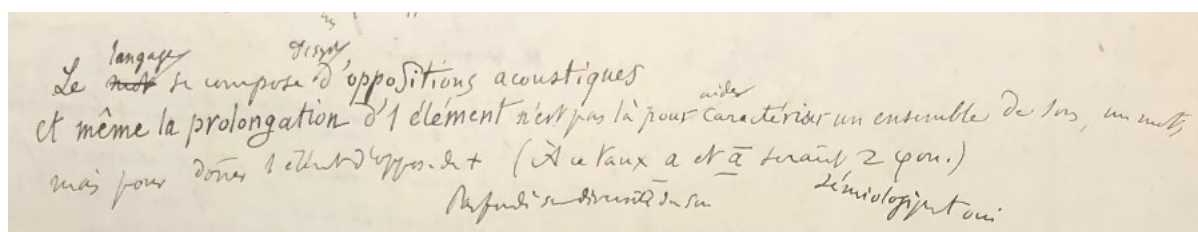 Le langage se compose d'oppositions acoustiques
et même la prolongation d'1 élément n'est pas là pour aider caractériser un ensemble de sons, un mot,
mais pour donner 1 elémt d'oppos. de + (À ce taux a et ā seraient 2 φon.)
sémiologiqnt oui